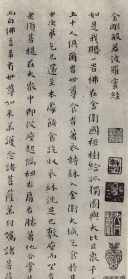 金剛般若波羅蜜經
如是我聞一時佛在舍衛國祇樹給孤獨園與大比丘眾千
五十人俱爾時世尊食時著衣持鉢入舍衛大城乞食於
乞已還至本處飯食訖收衣鉢洗足已敷座而坐時
須菩提在大眾中即從座起偏袒右肩右膝著地合掌恭
而白佛言希有世尊如來善護念諸菩薩善付囑諸菩薩